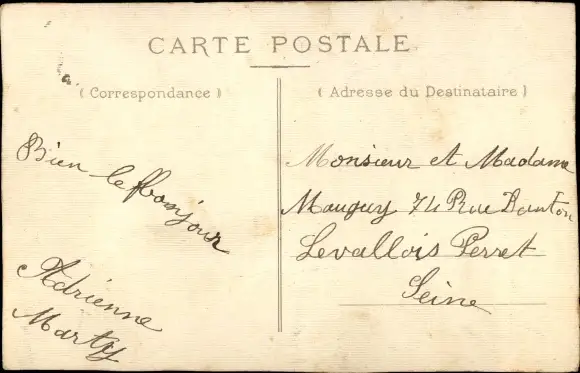 CARTE POSTALE
( Correspondance )
( Adresse du Destinataire )
Bien le bonjour
Adrienne
Marty
Monsieur et Madame
Mauguy 74 Rue Danton
Levallois Perret
Seine